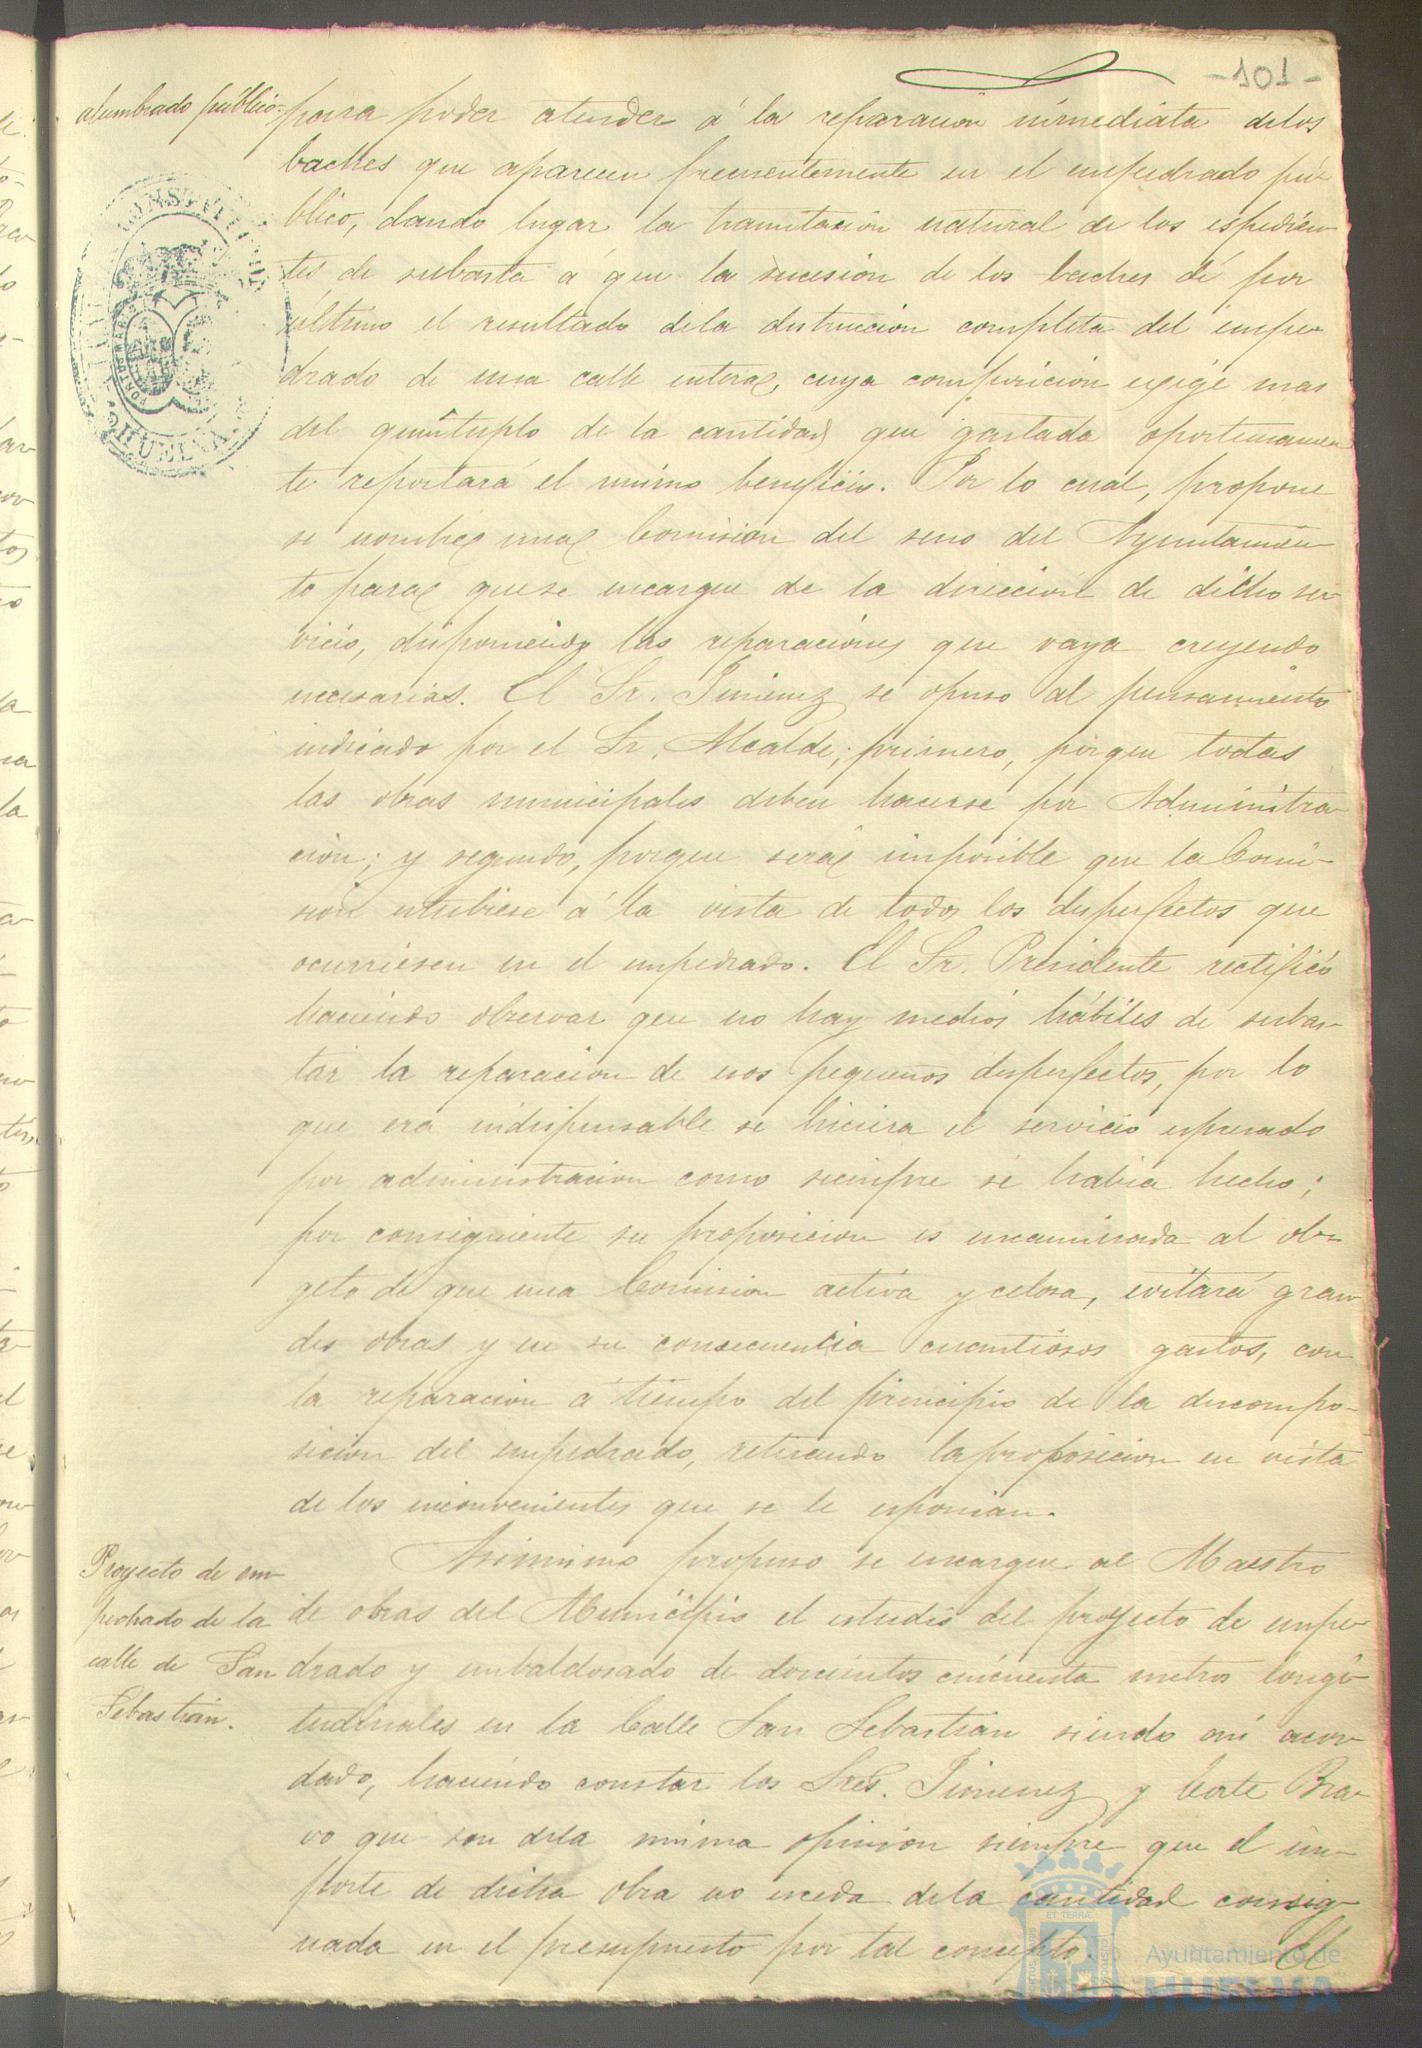 -101-
alumbrado público.
para poder atender á la reparación inmediata delos
baches que aparecen frecuentemente en el empedrado pú-
blico, dando lugar la tramitación natural de los espedien-
tes de subasta a que la sucesión de los baches dé por
último el resultado dela destrucción completa del empe-
drado de una calle entera, cuya composicion exige mas
del quintuplo de la cantidad que gastada oportunamen-
te reportará el mismo beneficio. Por lo cual, propone
se nombre una Comision del seno del Ayuntamien-
to para quese encargue de la dirección de dicho ser-
vicio, disponiendo las reparaciones que vaya creyendo
necesarias. El Sr. Jimenez se opuso al pensamiento
indicado por el Sr. Alcalde; primero, porque todas
las obras municipales deben hacerse por Administra-
cion; y segundo, porque será imposible que la Comi-
sion estubiese á la vista de todos los desperfectos que
ocurriesen en el empedrado. El Sr. Presidente rectificó
haciendo observar que no hay medios hábiles de subas-
tar la reparacion de esos pequeños desperfectos, por lo
que era indispensable se hiciera el servicio espresado
por administracion como siempre se habia hecho;
por consiguiente su proposicion es encaminada al ob-
geto de que una Comision activa y celosa, evitará gran-
des obras y en su consecuencia cuantiosos gastos, con
la reparacion á tiempo del principio de la descompo-
sicion del empedrado, retirando laproposicion en vista
de los inconvenientes que se le esponian.
Proyecto de em-
pedrado de la
calle de San
Sebastián.
Asimismo propuso se encargue al Maestro
de obras del Municipio el estudio del proyecto de empe-
drado y embaldosado de doscientos cincuenta metros longi-
tudinales en la Calle San Sebastian siendo así acor-
dado, haciendo constar los Sres. Jimenez y Corte Bra-
vo que son dela misma opinion siempre que el im-
porte de dicha obra no esceda dela cantidad consig-
nada en el presupuesto por tal concepto. El
CONSTITUCIONAL
HUELVA
Ayuntamiento de
HUELVA